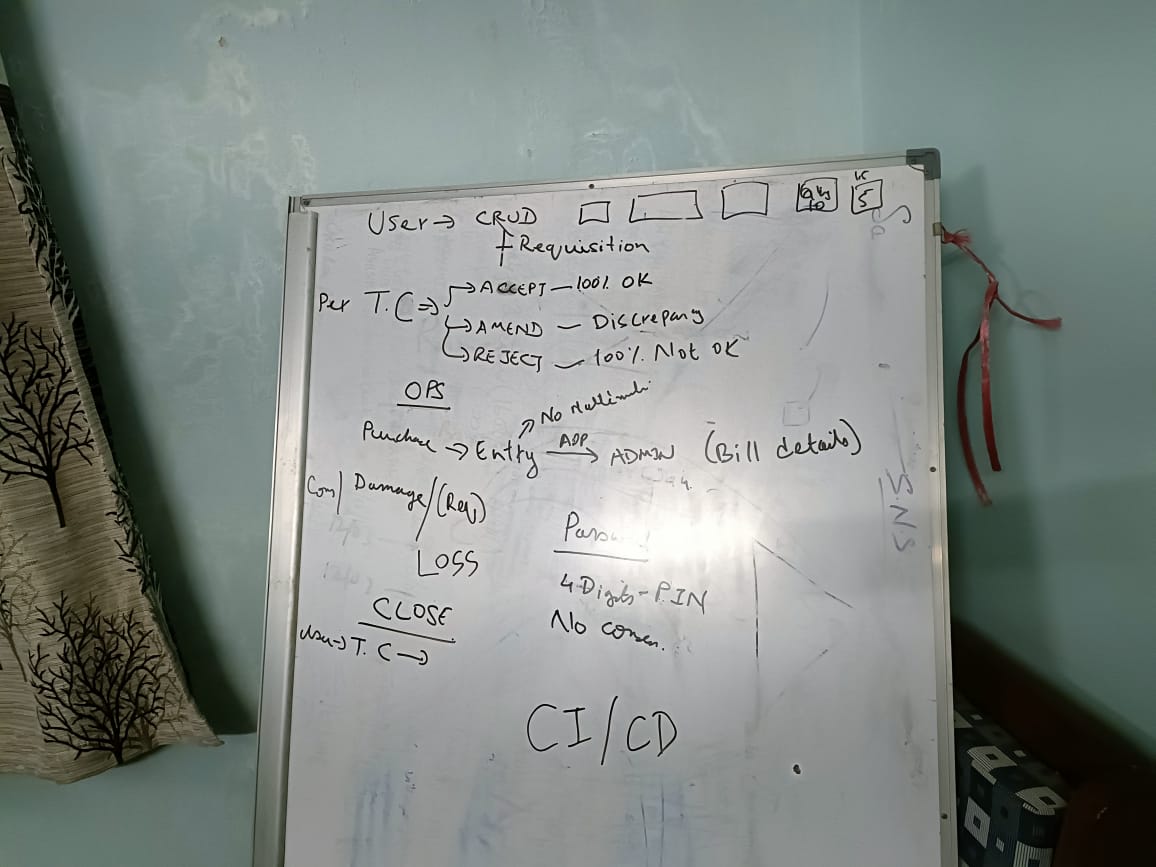 User → CRUD
Requisition
Per T.C ⇒ → ACCEPT — 100% OK
→ AMEND — Discrepany
→ REJECT — 100% Not OK
OPS
No
Purchase → Entry → ADMIN (Bill details)
Con/ Damage/(Rev)
LOSS
4 Digits - PIN
No
CLOSE
User → T.C →
CI/CD
5
S.N.S